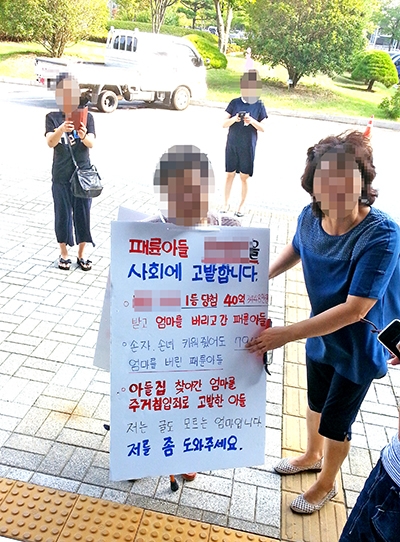 패륜아들 을
사회에 고발합니다.
○ 1등 당첨 40억
받고 엄마를 버리고 간 패륜아들
○ 손자 손녀 키워줬어도
엄마를 버린 패륜아들
○ 아들집 찾아간 엄마를
주거침입죄로 고발한 아들
저는 글도 모르는 엄마입니다
저를 좀 도와주세요.